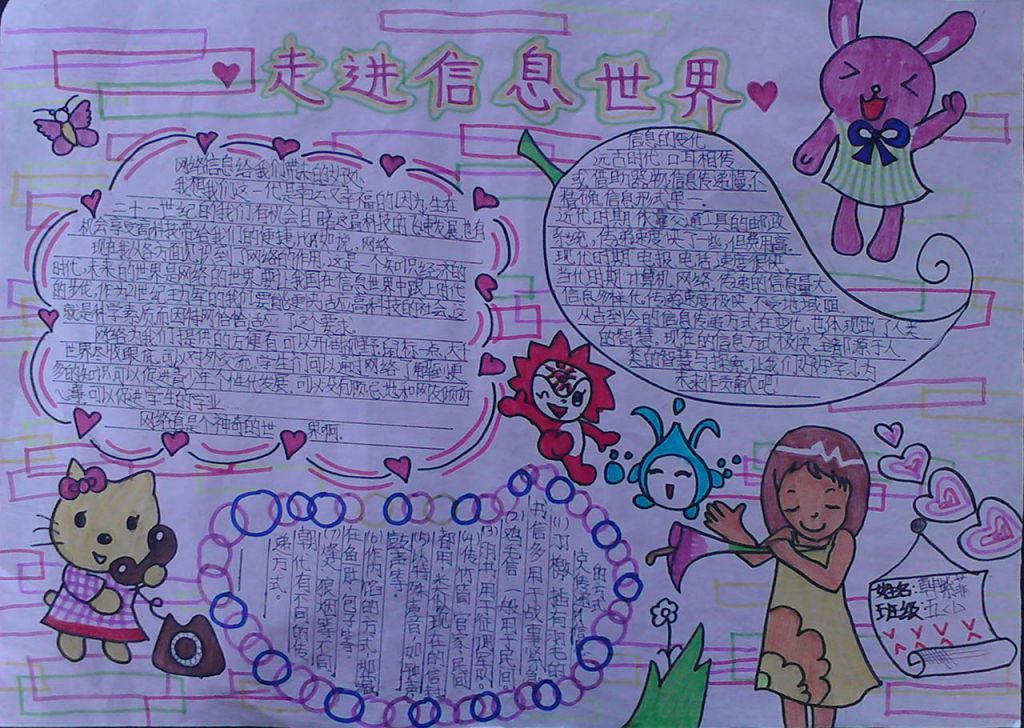 走进信息世界
网络信息给我们带来的好处
我想我们这一代是幸运又幸福的因为,生在
二十一世纪的我们有机会目睹这高科技的飞速发展,也有
机会享受高科技带给我们的便捷,比如说,网络
现在我从各方面认识到了网络的作用,这是一个知识经济的
时代,未来的世界是网络的世界,要让我国在信息世界中跟上时代
的步伐,作为21世纪主力军的我们要能更快适应高科技的社会,
就是科学素质,而因特网恰恰适应了这个要求。
网络为我们提供的方便有可以开阔视野,鼠标一点,大
世界尽收眼底,可以对外交流,学生们可以通过网络了解到更
多的知识,可以促进青少年个性化发展,可以没有顾忌地和网友倾诉
心事,可以做进学生的学业
网络真是个神奇的世界啊。
信息的变化
远古时代 口耳相传
或借助器物,信息传递慢,不
精确,信息形式单一。
近代时期 依靠交通工具的邮政
系统,传递速度快了一些,但费用高。
现代时期 电报 电话,速度很快,
当代时期 计算机 网络,传递的信息量大,
信息多样化,传递速度极快,不受地域阻
从古到今的信息传递方式在变化,也体现出了人类
的智慧,现在的信息方式极快,全都源于人
类的智慧与探索,让我们好好学习,为
未来作贡献吧!
古传递信息
的方式
(1)
书信,多用于战事紧急
(2)鸡毛信 一般用于民间
(3)羽书,用于征调军队。
(4)传竹筒,官家,民间
都用,类似现在的信
(5)以特殊声音,如鼓声
(6)作内馅的方式,如藏
在鱼肚,包子等。
(7)烽火,狼烟等,不同
朝代有不同的传
递方式。
姓名:
班级:五<1>